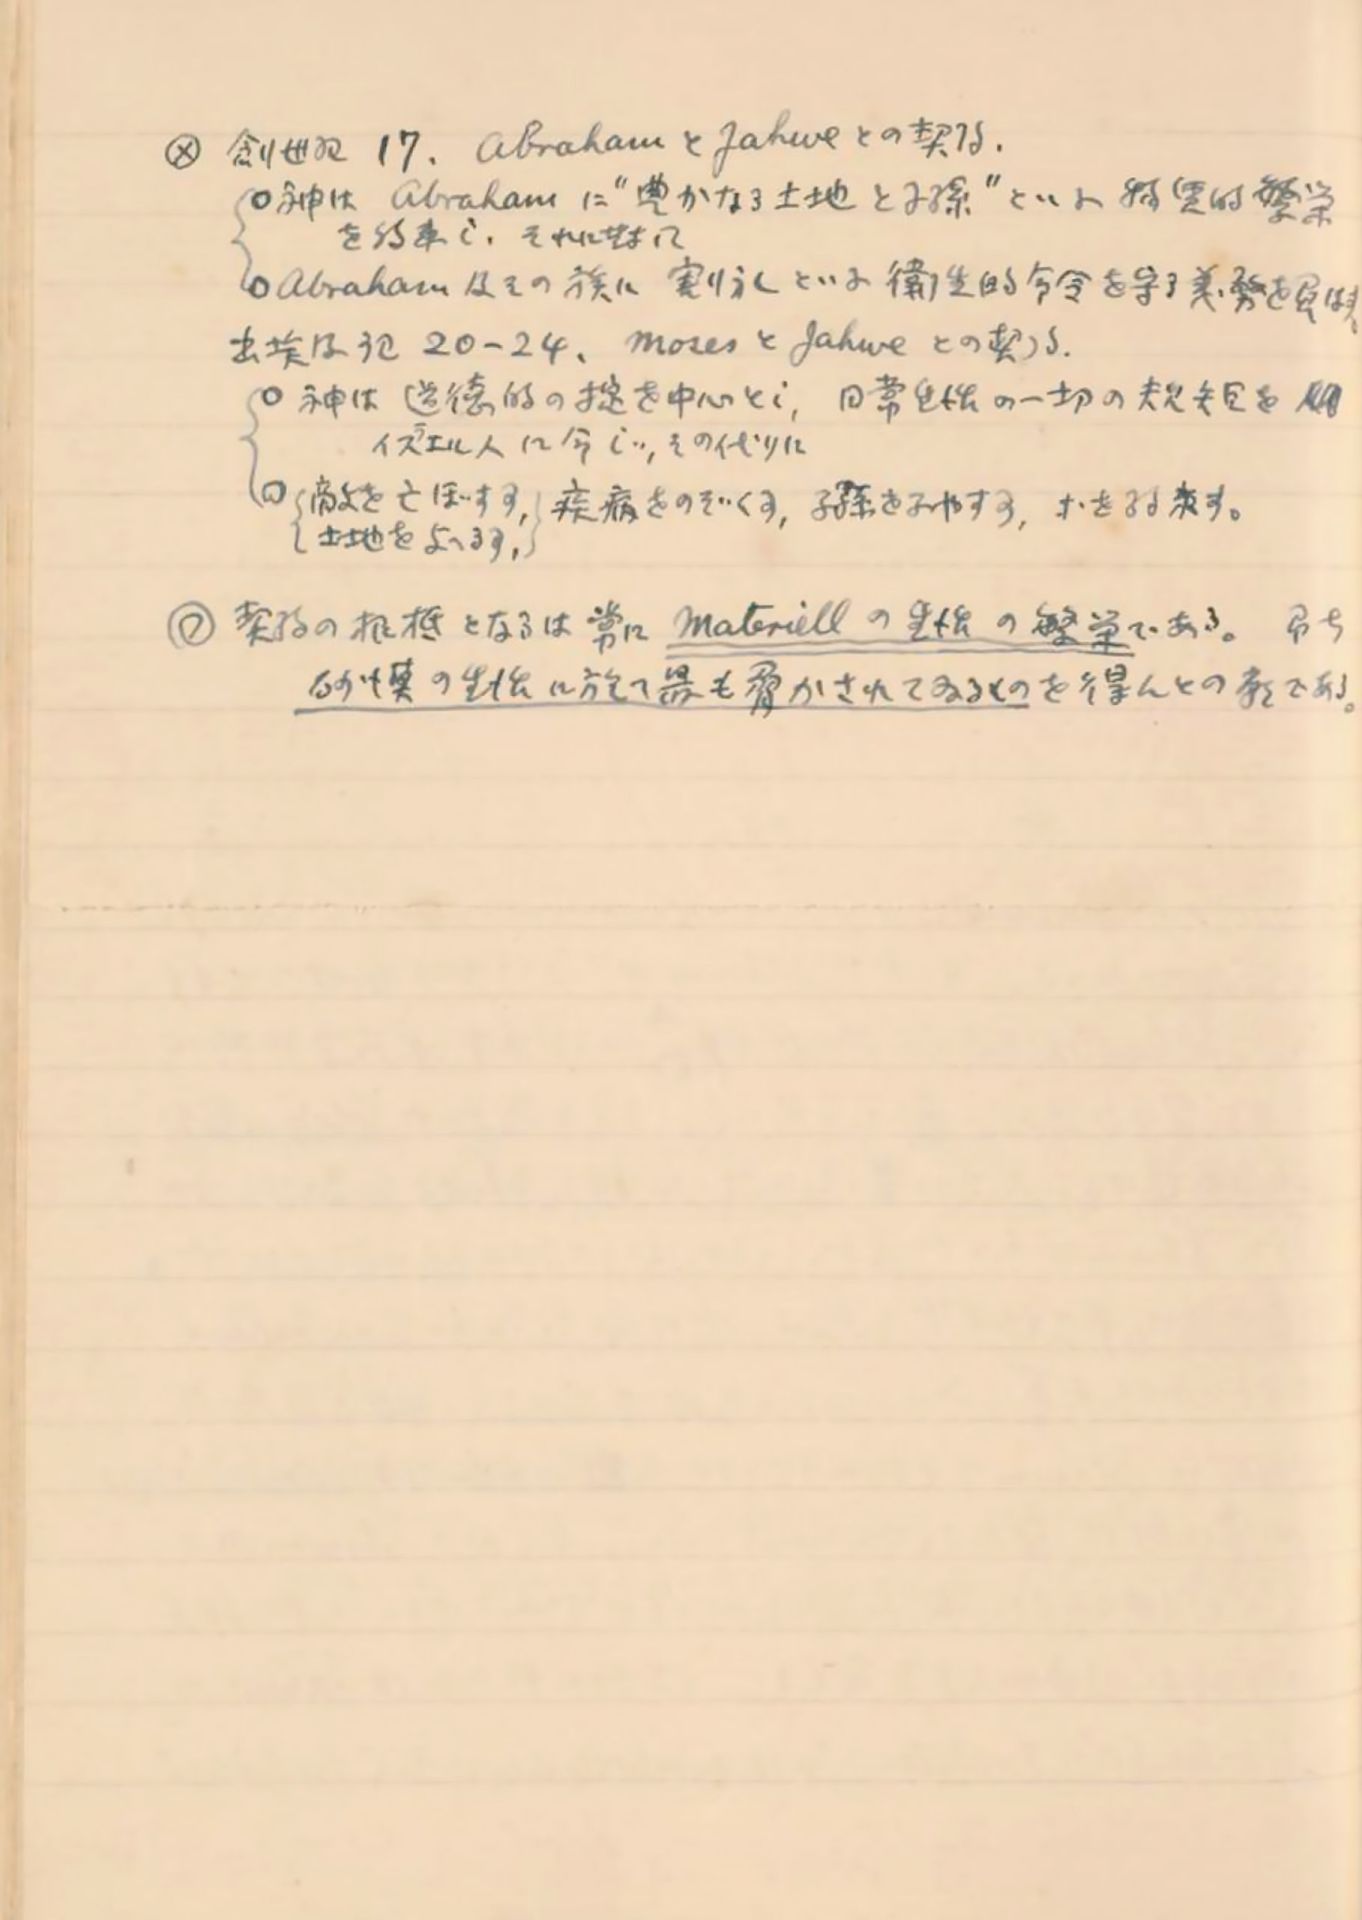 ⓧ 創世記 17. Abraham と Jahwe との契約.
○神は Abraham に"豊かなる土地と子孫"といふ 物質的繁栄
を約束し、それに対して
○Abraham 及その族に 割礼といふ 衛生的命令を守る義務を負はす。
出埃及記 20-24、Moses と Jahwe との契約.
○神は 道徳的の掟を中心とし, 日常生活の一切の規矩を
イズラエル人に命じ, その代りに
○敵を亡ぼす事, 疾病をのぞく事, 子孫をふやす事, 等を約束す。
土地を与へる事,
契約の根柢となるは常に Materiell の生活の繁栄である。即ち
砂漠の生活に於て最も脅かされてゐるものを得んとの契である。